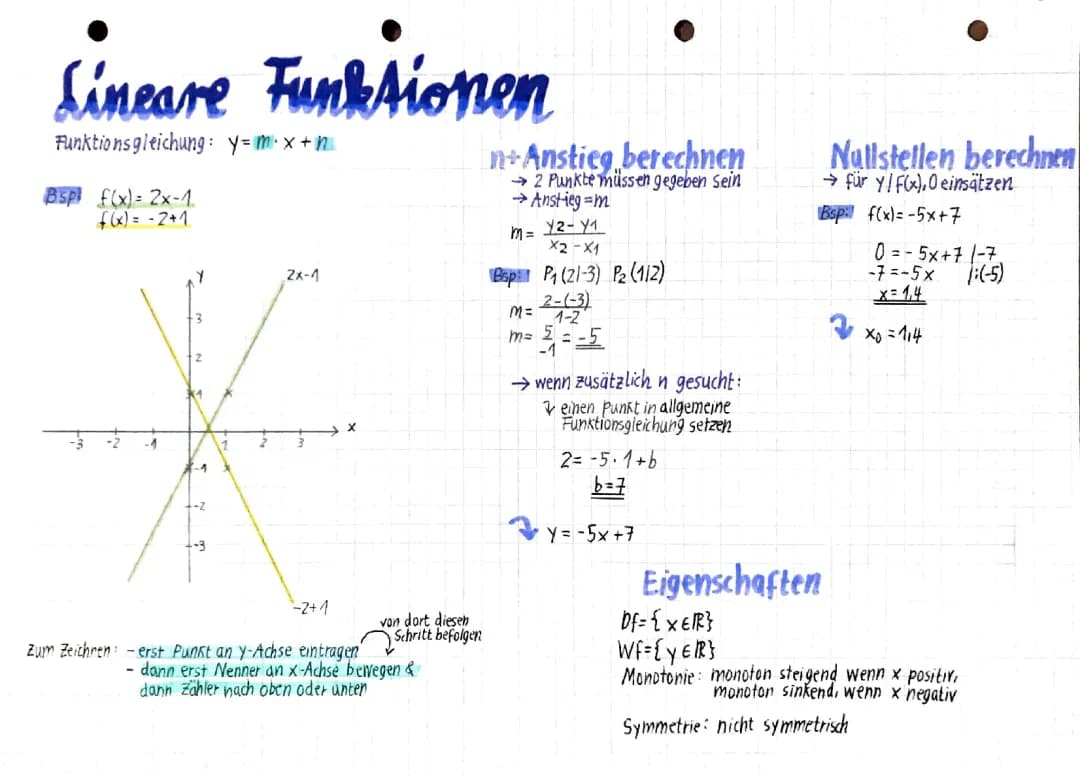 Lineare Funktionen
Funktionsgleichung: y=m·x+n
Bsp! f(x)= 2x-1
f(x)= -2+1
y
2x-1
3
2
1
x
-3 -2 -1 1 2 3
-1
-2
-3
-2+1
von dort diesen
Schritt befolgen
Zum Zeichnen: - erst Punkt an y-Achse eintragen
- dann erst Nenner an x-Achse bewegen &
dann Zähler nach oben oder unten
n+Anstieg berechnen
→ 2 Punkte müssen gegeben sein
→ Anstieg=m
m= y2-y1
x2-x1
Bsp:! P1(2/-3) P2(1/2)
m= 2-(-3)
1-2
m= 5 = -5
-1
→ wenn zusätzlich n gesucht:
↴ einen Punkt in allgemeine
Funktionsgleichung setzen
2= -5·1+b
b=7
y= -5x+7
Nullstellen berechnen
→ für y/f(x),0 einsätzen
Bsp:! f(x)= -5x+7
0 = -5x+7 /-7
-7=-5x /:(-5)
x=1,4
x0=1,4
Eigenschaften
Df={x∈ℝ}
Wf={y∈ℝ}
Monotonie: monoton steigend wenn x positiv,
monoton sinkend, wenn x negativ
Symmetrie: nicht symmetrisch